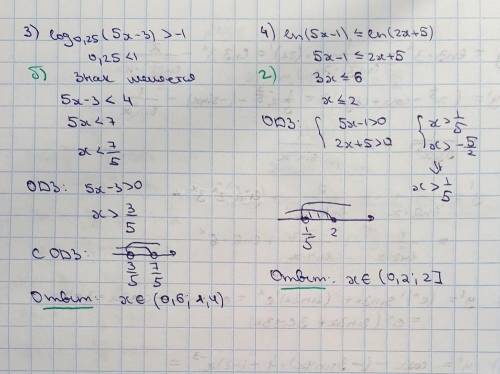 3) log₀,₂₅(5x-3) > -1
0,25<1
б) Знак меняется
5x-3 < 4
5x < 7
x < 7/5
ОДЗ: 5x-3>0
x > 3/5
С ОДЗ:
3/5 7/5
Ответ: x ∈ (0,6; 1,4)
4) ln(5x-1) ≤ ln(2x+5)
5x-1 ≤ 2x+5
2) 3x ≤ 6
x ≤ 2
ОДЗ: { 5x-1>0 { x > 1/5
2x+5>0 x > -5/2
⇓
x > 1/5
1/5 2
Ответ: x ∈ (0,2; 2]